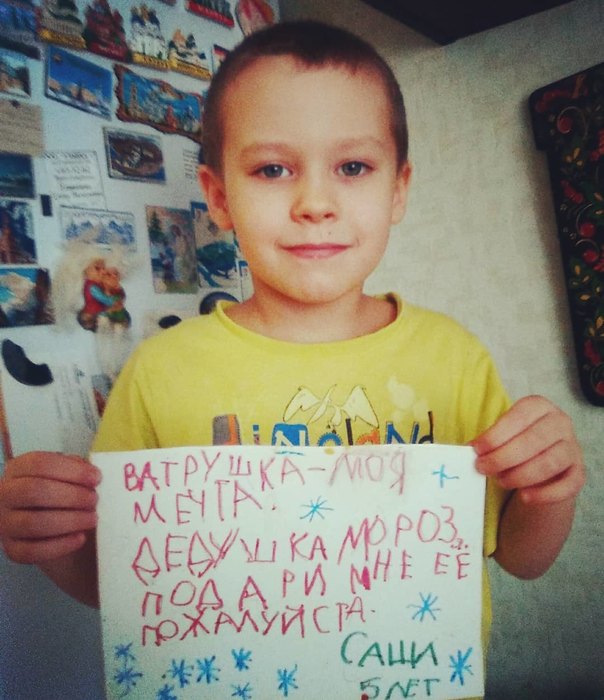 DiNoLaND
ВАТРУШКА-МОЯ
МЕЧТА!
ДЕДУШКА МОРОЗ,
ПОДАРИ МНЕ ЕЁ
ПОЖАЛУЙСТА.
САШИ
5 ЛЕТ